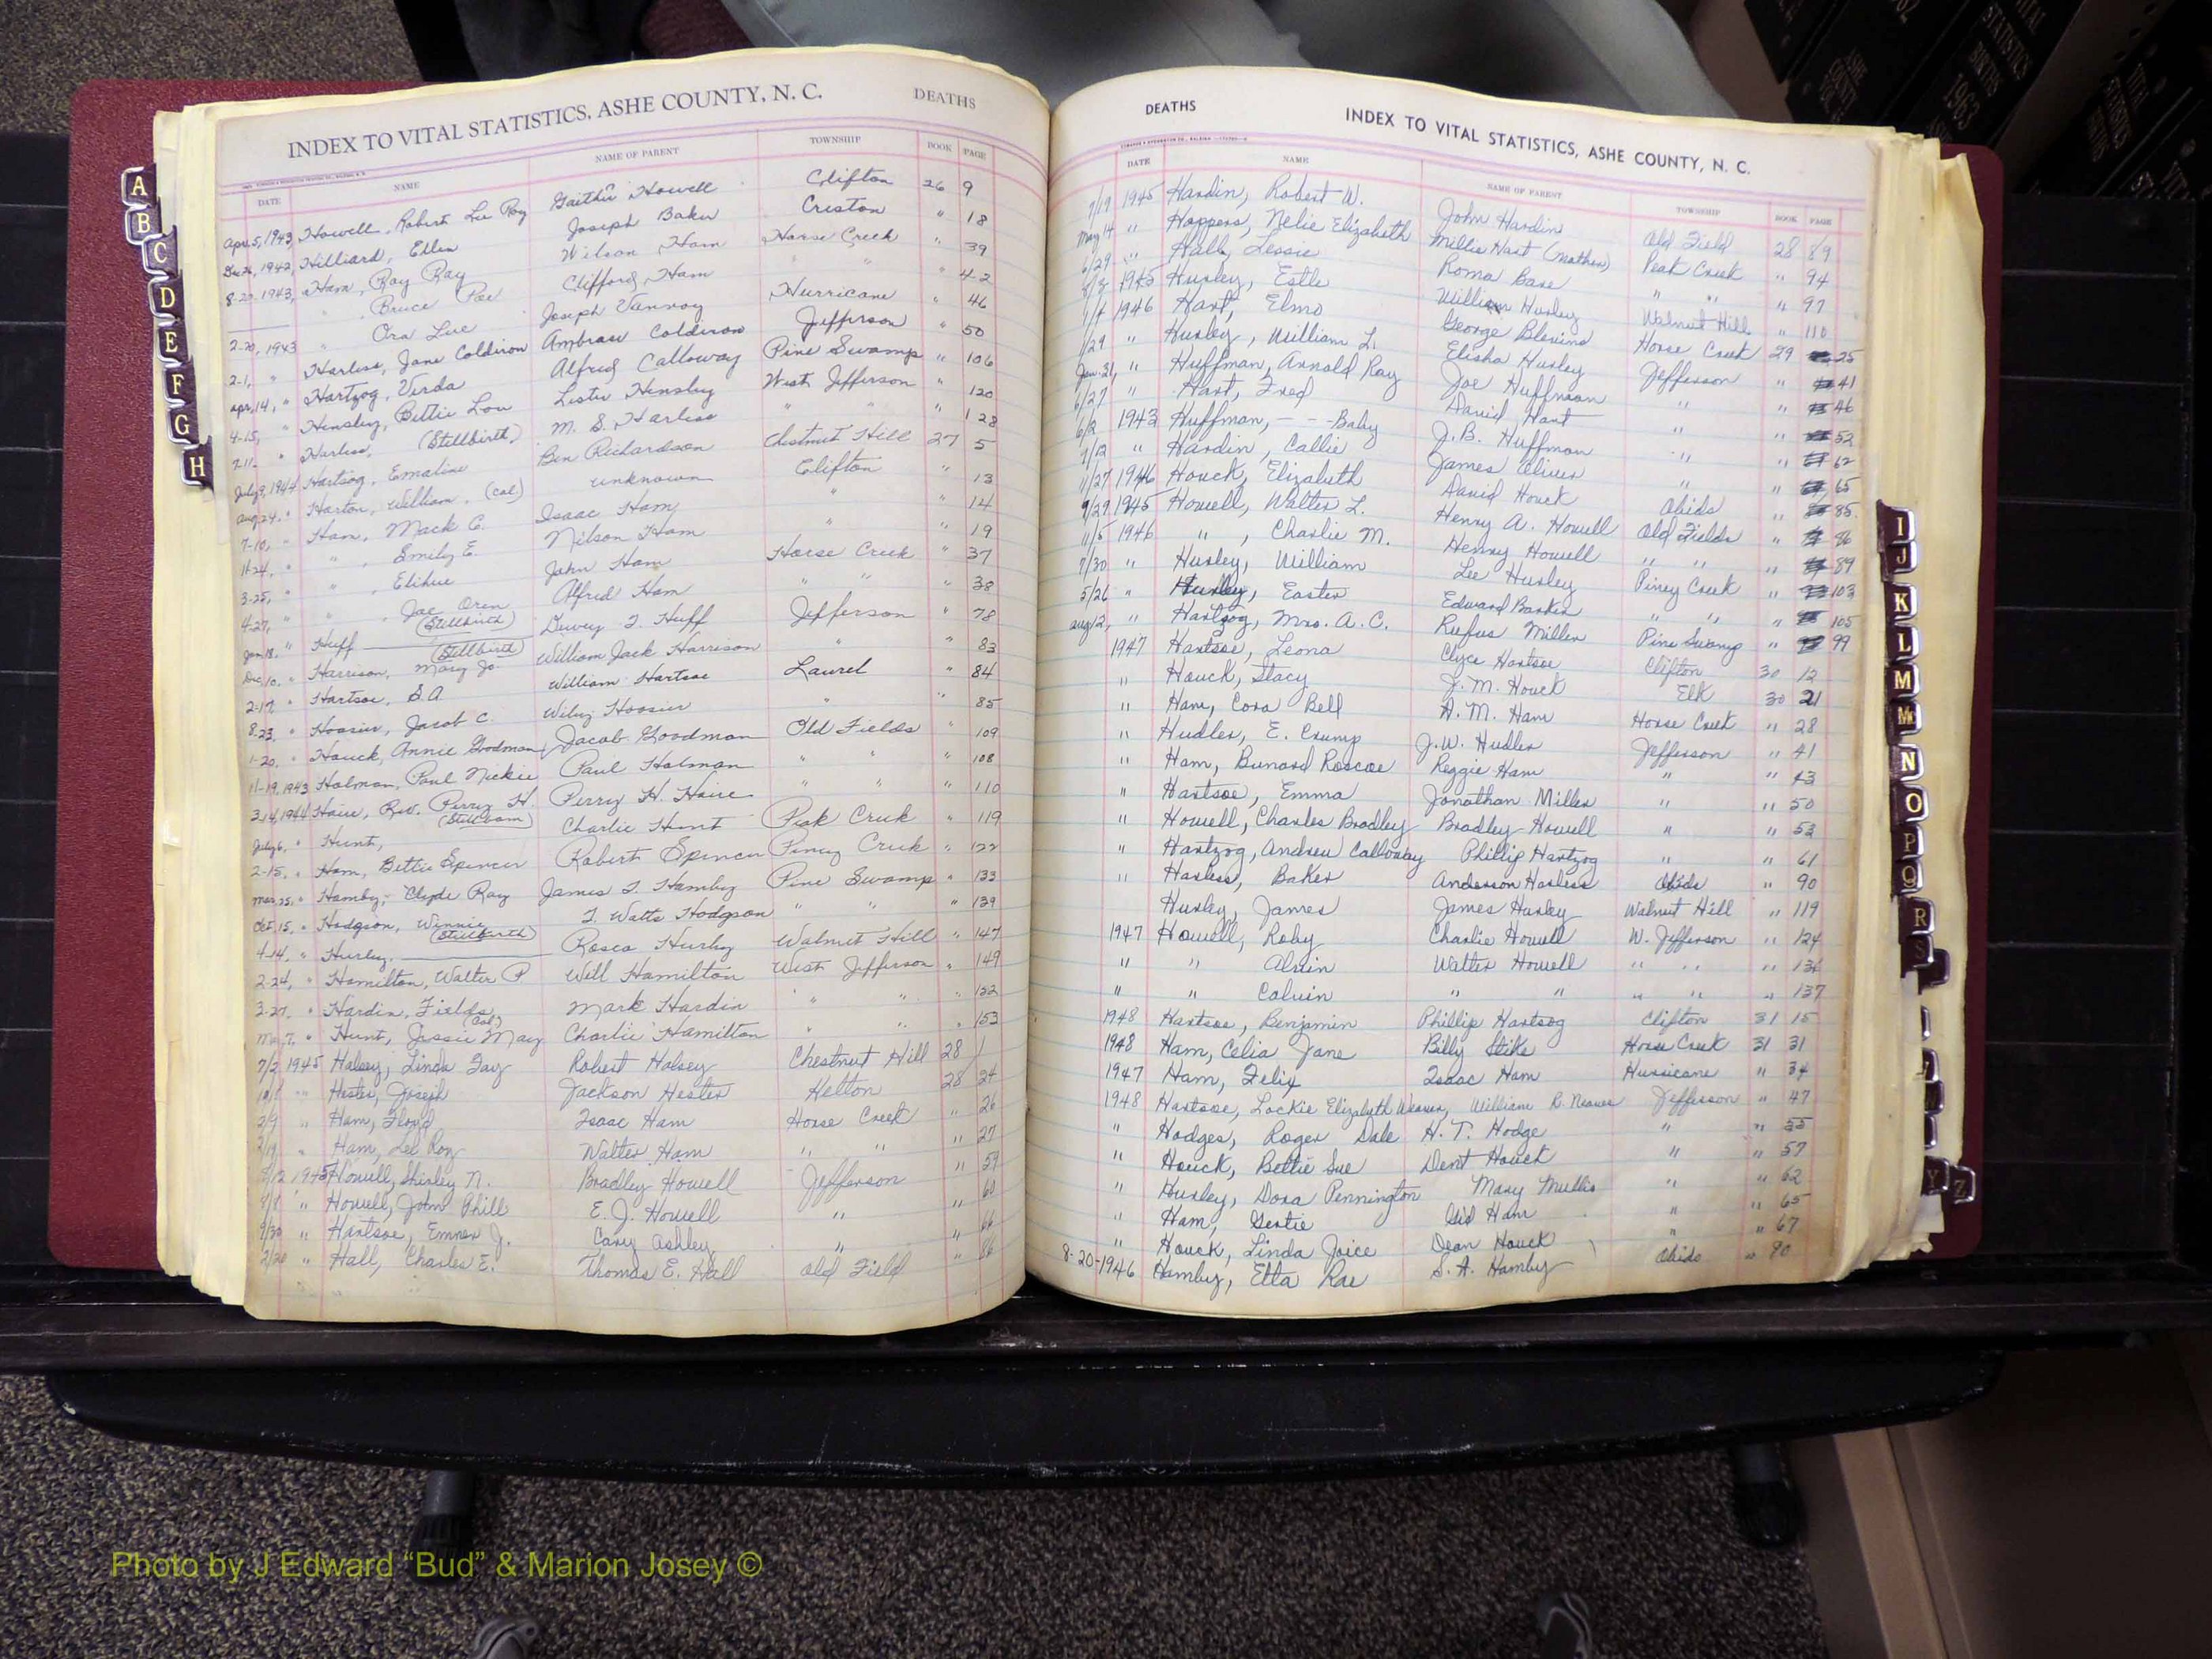 INDEX TO VITAL STATISTICS, ASHE COUNTY, N. C. DEATHS
DATE NAME NAME OF PARENT TOWNSHIP BOOK PAGE
Apr. 5, 1943, Howell, Robert Lee Roy Gaither Howell Clifton 26 9
Dec 26, 1942, Hilliard, Ellen Joseph Baker Creston " 18
8-20-1943, Ham, Roy Ray Wilson Ham Horse Creek " 39
" , Bruce Poe Clifford Ham " " " 42
2-20, 1943 " Ora Lue Joseph Vannoy Hurricane " 46
2-1, " Harless, Jane Coldiron Ambrose Coldiron Jefferson " 50
Apr. 14, " Hartzog, Verda Alfred Calloway Pine Swamp " 106
4-15, " Hensley, Bettie Lou Lester Hensley West Jefferson " 120
7-11- " Harless, (Stillbirth) M. S. Harless " " " 128
July 9, 1944 Hartsog, Emaline Ben Richardson Chestnut Hill 27 5
Aug 24, " Harton, William, (Col) unknown Clifton " 13
7-10, " Ham, Mack C. Isaac Ham " " 14
11-24, " " , Emily E. Nilson Ham " " 19
3-25, " " , Elihue John Ham Horse Creek " 37
4-27, " " , Joe Oren (Stillbirth) Alfred Ham " " " 38
Jan 18, " Huff (Stillbirth) Dewey T. Huff Jefferson " 78
Dec, 10, " Harrison, Mary Jo William Jack Harrison " " 83
2-17, " Hartsoe, B. A William Hartsoe Laurel " 84
8-23, " Hoosier, Jacob C. Wiley Hoosier " " 85
1-20, " Houck, Annie Goodman Jacob Goodman Old Fields " 109
11-19, 1943 Holman, Paul Nickie Paul Holman " " " 108
3-14, 1944 Haire, Rev. Perry H. Perry H. Haire " " " 110
July 6, " Hunt, (Stillborn) Charlie Hunt Peak Creek " 119
2-15, " Ham, Bettie Spencer Robert Spencer Piney Creek " 122
Mar, 25, " Hamby, Clyde Ray James T. Hamby Pine Swamp " 133
Oct, 15, " Hodgson, Winnie T. Watts Hodgson " " " 139
4-14, " Hurley, (Stillbirth) Rosco Hurley Walnut Hill " 147
2-24, " Hamilton, Walter P Will Hamilton West Jefferson " 149
3-27, " Hardin, Fields Mark Hardin " " " 152
Ma, 7, " Hunt, Jessie May (Col) Charlie Hamilton " " " 153
7/2 1945 Halsey, Linda Fay Robert Halsey Chestnut Hill 28 1
" Hester, Joseph Jackson Hester Helton 28 24
2/9 " Ham, Floyd Isaac Ham Horse Creek " 26
" Ham, Lee Roy Walter Ham " " " 27
1945 Howell, Shirley N. Bradley Howell Jefferson " 59
" Howell, John Phill E. J. Howell " " 60
9/30 " Hartsoe, Emner J. Cary Ashley " " 66
2/20 " Hall, Charles E. Thomas E. Hall Old Field " 86
DEATHS INDEX TO VITAL STATISTICS, ASHE COUNTY, N. C.
DATE NAME NAME OF PARENT TOWNSHIP BOOK PAGE
7/19 1945 Hardin, Robert W. John Hardin Old Field 28 89
May 14 " Hoppers, Nelie Elizabeth Millie Hart (Mother) Peak Creek " 94
6/29 " Hall, Lessie Roma Bare " " " 97
1945 Hurley, Estle William Hurley Walnut Hill " 110
1/4 1946 Hart, Elmo George Blevins Horse Creek 29 25
1/29 " Hurley, William L. Elisha Hurley Jefferson " 41
Jan. 31, " Huffman, Arnold Ray Joe Huffman " " 46
6/27 " Hart, Fred David Hart " " 52
6/2 1943 Huffman, - - - Baby J. B. Huffman " " 62
1/12 " Hardin, Callie James Oliver " " 65
11/27 1946 Houck, Elizabeth David Houck Obids " 85.
9/29 1945 Howell, Walter L. Henry A. Howell Old Fields " 86
11/5 1946 " , Charlie M. Henry Howell " " " 89
7/30 " Hurley, William Lee Hurley Piney Creek " 103
5/26 " Hurley, Easter Edward Barker " " " 105
Aug 12, " Hartzog, Mrs. A. C. Rufus Miller Pine Swamp " 99
1947 Hartsoe, Leona Clyce Hartsoe Clifton 30 12
" Houck, Stacy J. M. Houck Elk 30 21
" Ham, Cora Bell A. M. Ham Horse Creek " 28
" Hudler, E. Crump J. W. Hudler Jefferson " 41
" Ham, Bunard Roscoe Reggie Ham " " 43
" Hartsoe, Emma Jonathan Miller " " 50
" Howell, Charles Bradley Bradley Howell " " 53
" Hartzog, Andrew Calloway Phillip Hartzog " " 61
" Harless, Baker Anderson Harless Obids " 90
Hurley, James James Hurley Walnut Hill " 119
1947 Howell, Roby Charlie Howell W. Jefferson " 124
" " Alvin Walter Howell " " " 136
" " Calvin " " " " " 137
1948 Hartsoe, Benjamin Phillip Hartsog Clifton 31 15
1948 Ham, Celia Jane Billy Stike Horse Creek 31 31
1947 Ham, Felix Isaac Ham Hurricane " 34
1948 Hartsoe, Lockie Elizabeth Weaver, William R. Weaver Jefferson " 47
" Hodges, Roger Dale H. T. Hodge " " 55
" Houck, Bettie Sue Dent Houck " " 57
" Hurley, Dora Pennington Mary Mullis " " 62
" Ham, Gertie Gid Ham " " 65
" Houck, Linda Joice Dean Houck " " 67
8-20-1946 Hamby, Etta Rae S. A. Hamby Obids " 90
A
B
C
D
E
F
G
H
I
J
K
L
M
Mc
N
O
P
Q
R
Y
Z
VITAL STATISTICS BIRTHS 1963
ASHE COUNTY
Photo by J Edward “Bud” & Marion Josey ©